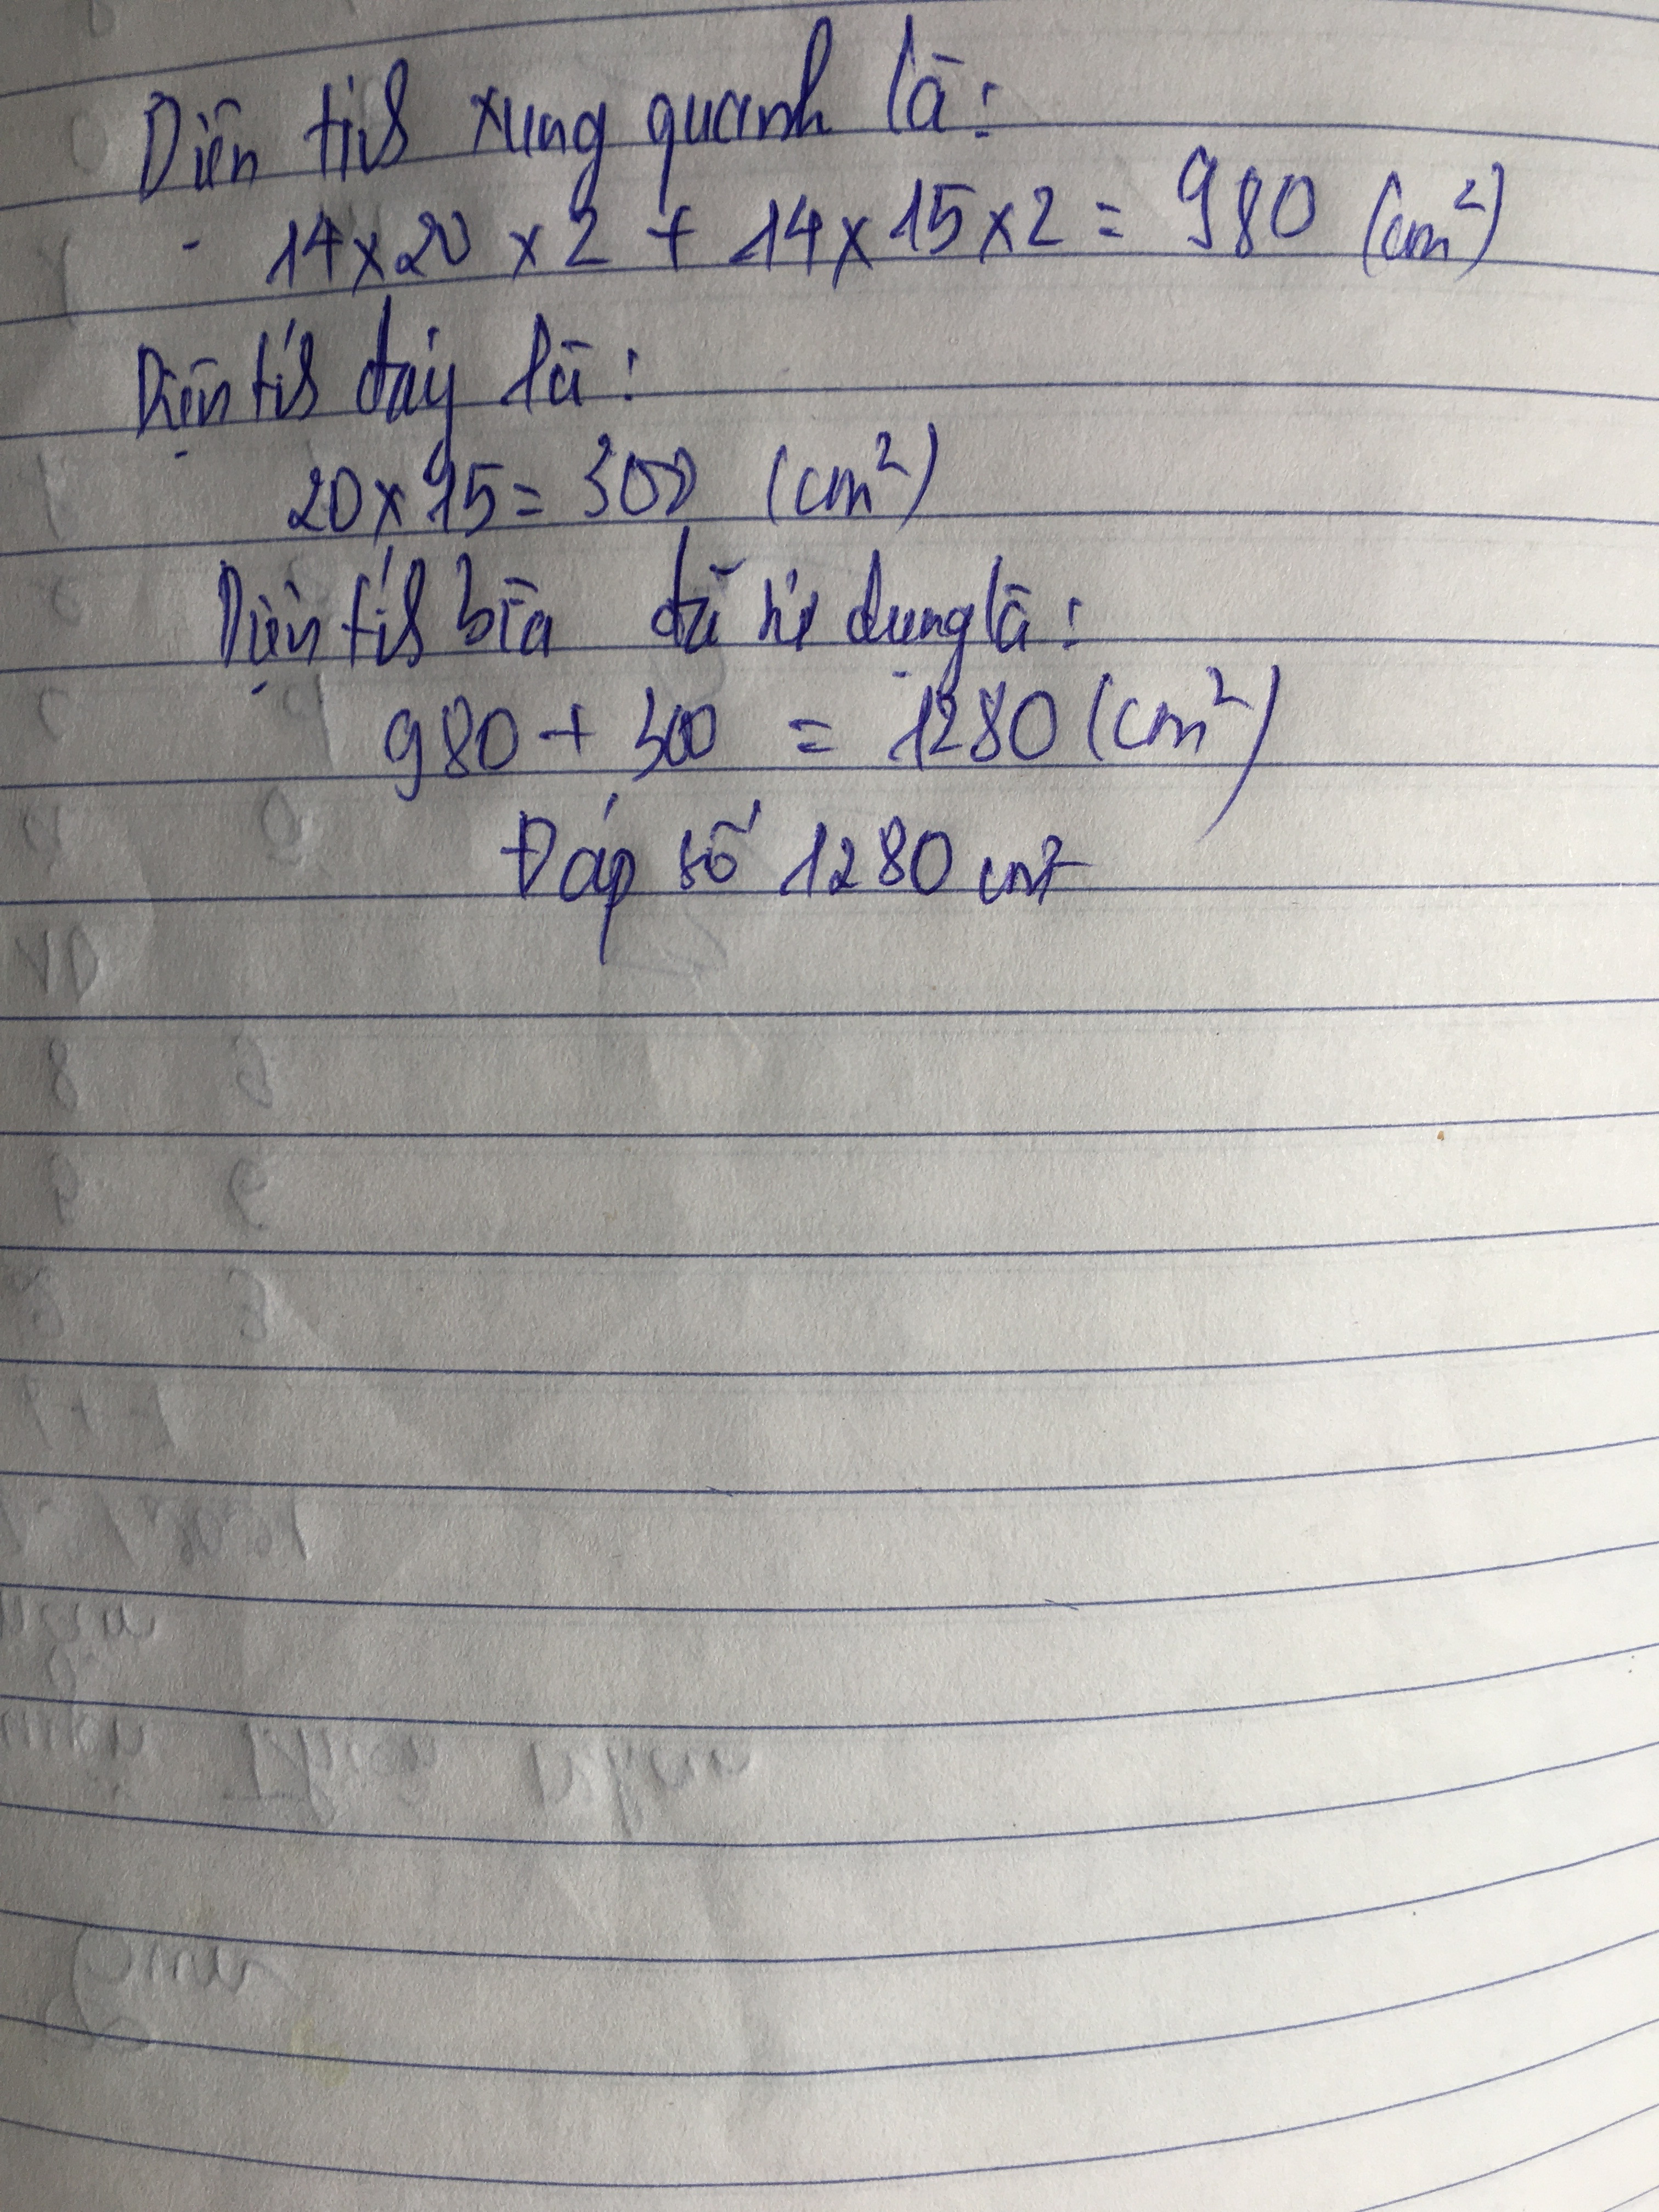 Diện tích xung quanh là:
14 x 20 x 2 + 14 x 15 x 2 = 980 (cm²)
Diện tích đáy là:
20 x 15 = 300 (cm²)
Diện tích bìa đã sử dụng là:
980 + 300 = 1280 (cm²)
Đáp số 1280 cm²